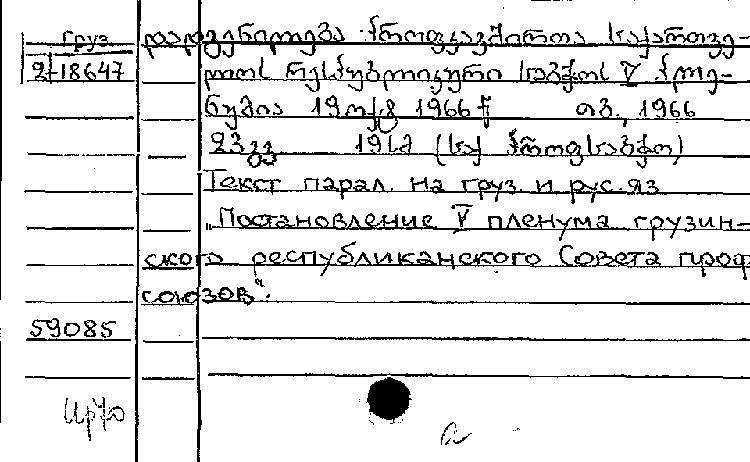 груз.
2-18647
დადგენილება პროფკავშირთა საქართვე-
ლოს რესპუბლიკური საბჭოს V პლე-
ნუმია 19 ოქტ 1966 წ თბ., 1966
23 გვ 19 (საქ პროფსაბჭო)
Текст парал. на груз. и рус. яз
„Постановление V пленума грузин-
ского республиканского Совета проф
союзов“.
59085